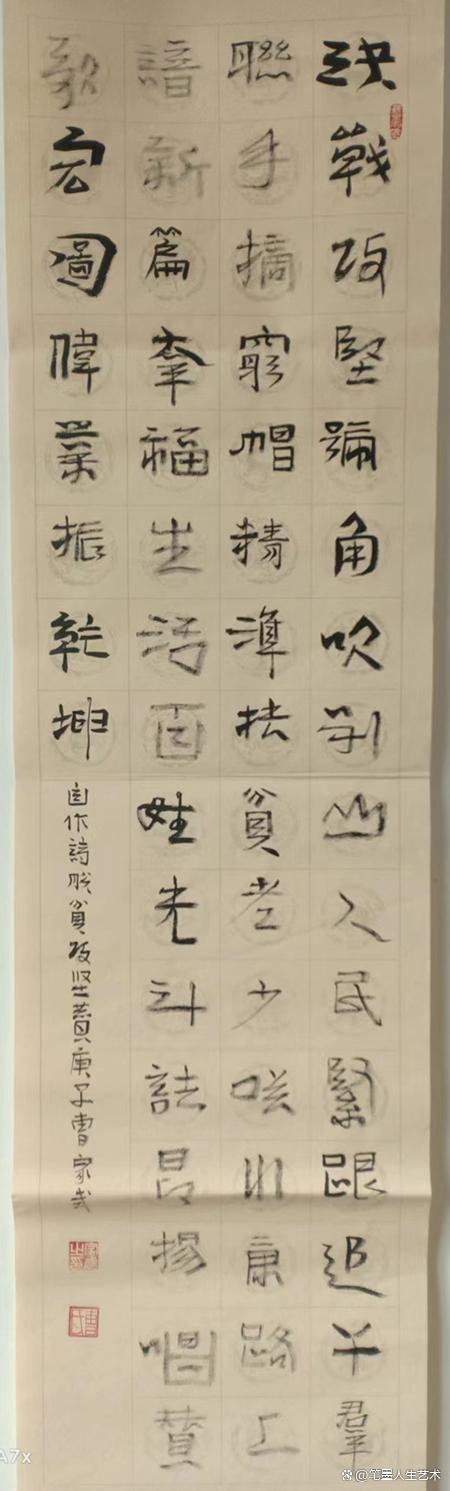 決戰攻堅號角吹山人民緊跟追干羣
聯手摘窮帽精準扶貧老少咲小康路上
譜新篇幸福生活百姓斗誌昂揚唱贊
歌宏圖偉業振乾坤
自作詩脱貧攻坚贊庚子曹家武
A7x
笔墨人生艺术